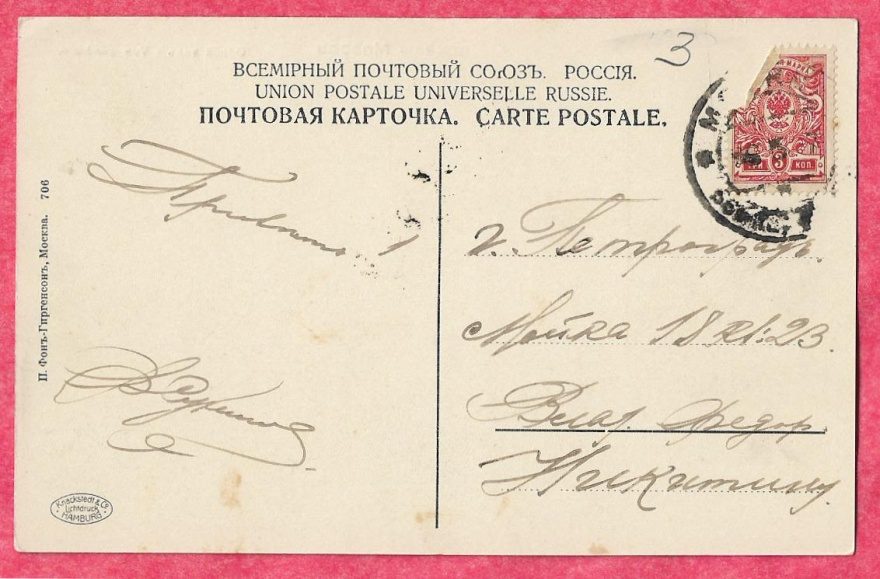 3
ВСЕМІРНЫЙ ПОЧТОВЫЙ СОЮЗЪ. РОССІЯ.
UNION POSTALE UNIVERSELLE RUSSIE.
ПОЧТОВАЯ КАРТОЧКА. CARTE POSTALE.
МАРКА
ТРИ 3 КОП.
Привѣтъ!
г. Петроградъ.
Мойка 18 кв. 23.
Влад. Федор.
Никитину
П. Фонъ-Гиргенсонъ, Москва. 706
Knackstedt & Co.
Lichtdruck
HAMBURG